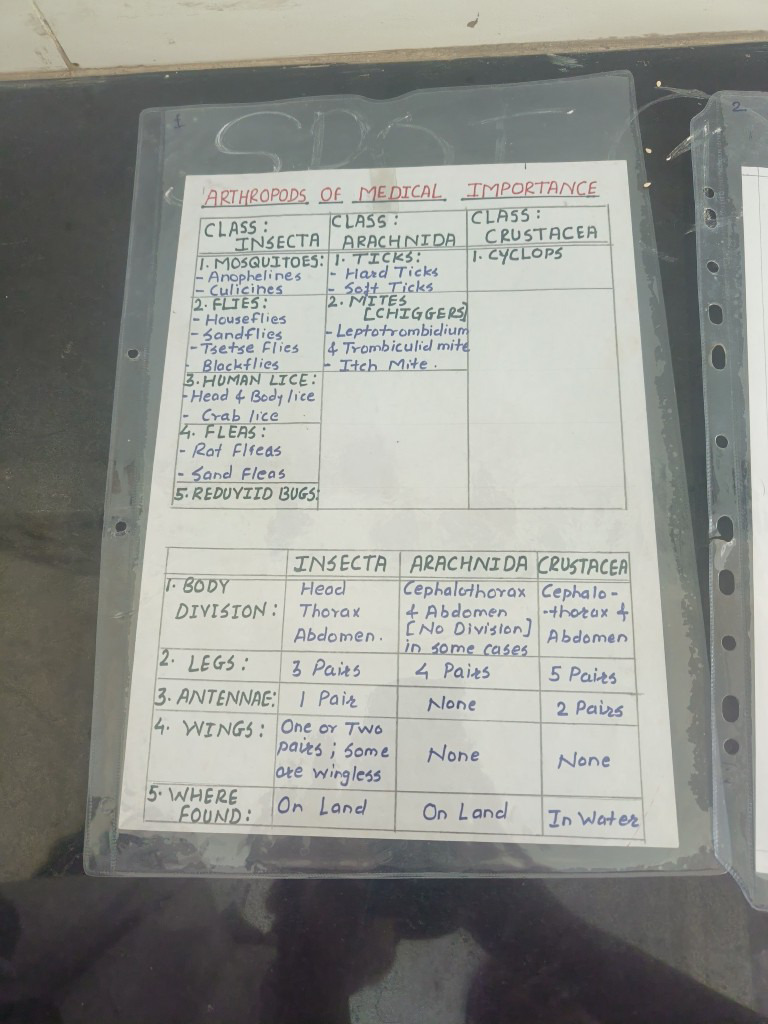 1
SDST
2
ARTHROPODS OF MEDICAL IMPORTANCE
CLASS: INSECTA
CLASS: ARACHNIDA
CLASS: CRUSTACEA
1. MOSQUITOES:
- Anophelines
- Culicines
2. FLIES:
- Houseflies
- Sandflies
- Tsetse Flies
- Blackflies
3. HUMAN LICE:
- Head & Body lice
- Crab lice
4. FLEAS:
- Rat Flfeas
- Sand Fleas
5. REDUVIID BUGS:
1. TICKS:
- Hard Ticks
- Soft Ticks
2. MITES
[CHIGGERS]
- Leptotrombidium
& Trombiculid mite
- Itch Mite.
1. CYCLOPS
INSECTA ARACHNIDA CRUSTACEA
1. BODY DIVISION:
Head
Thorax
Abdomen.
Cephalothorax
& Abdomen
[No Division]
in some cases
Cephalo-
-thorax &
Abdomen
2. LEGS: 3 Pairs 4 Pairs 5 Pairs
3. ANTENNAE: 1 Pair None 2 Pairs
4. WINGS:
One or Two
pairs; some
are wingless
None
None
5. WHERE FOUND:
On Land On Land In Water